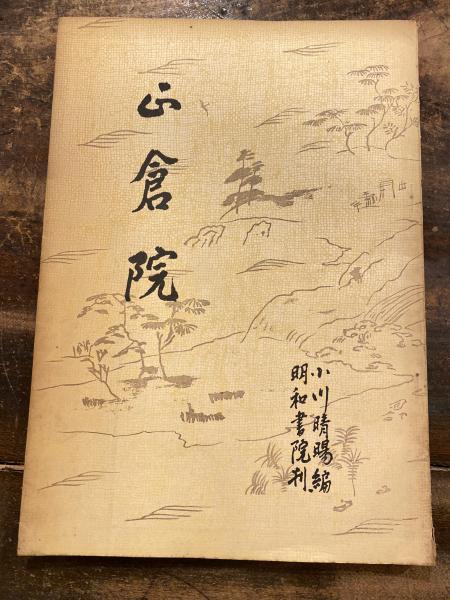 正倉院
小川晴暘編
明和書院刊